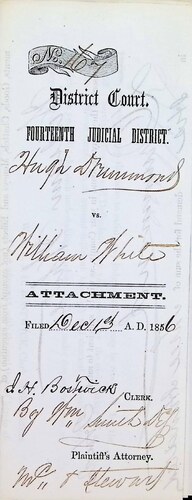 No. 167
District Court.
FOURTEENTH JUDICIAL DISTRICT.
Hugh Drummond
vs.
William White
ATTACHMENT.
FILED Dec 13 A. D. 1856
J. H. Bostwick
CLERK.
By Wm Smith Dy
Plaintiff's Attorney.
& Stewart